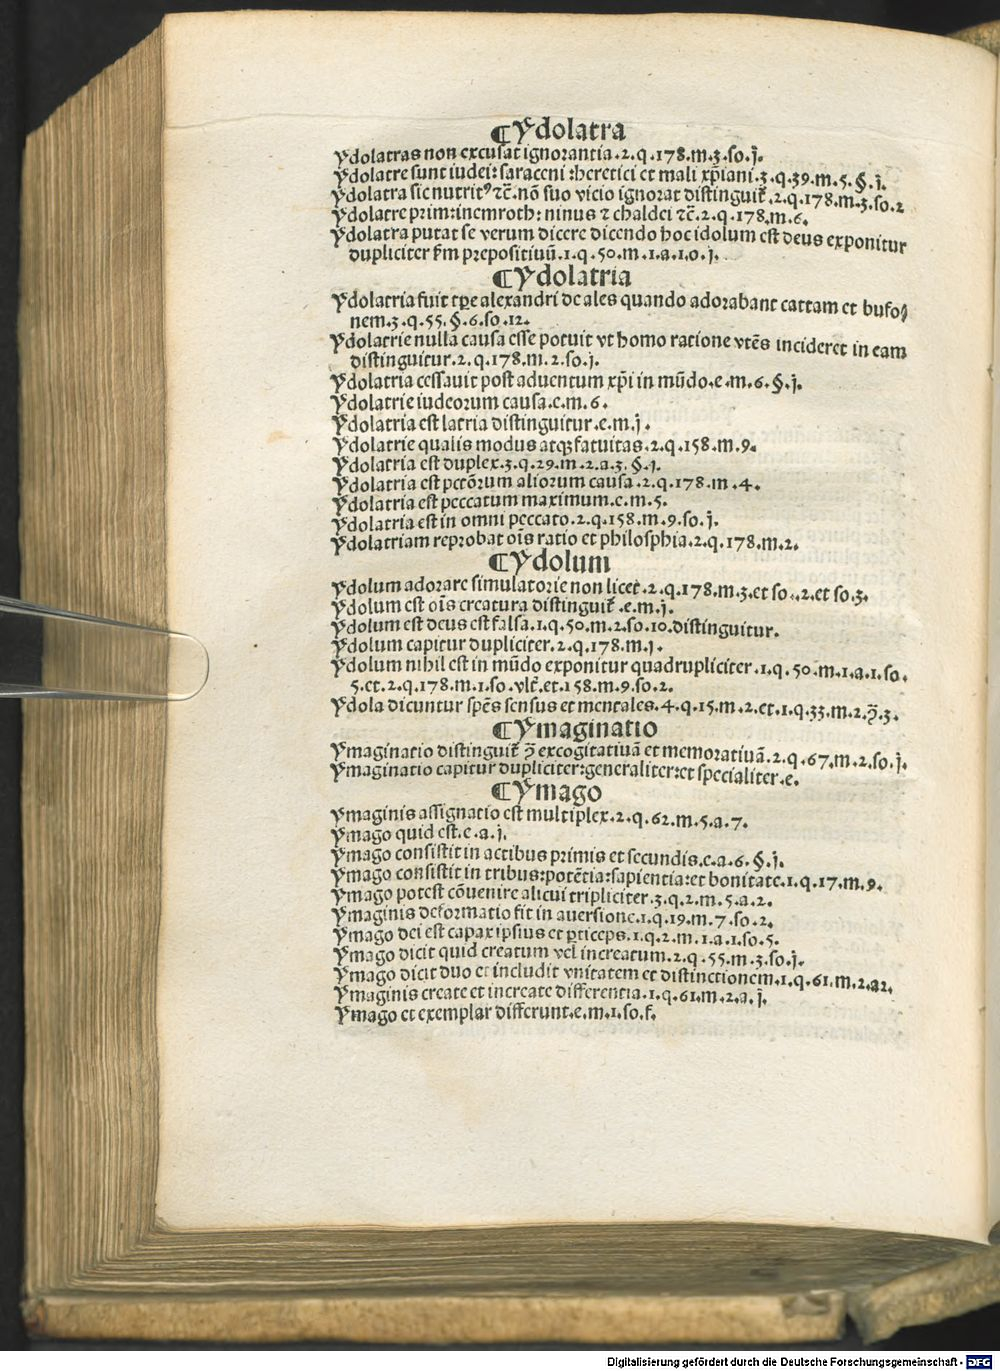 ¶Ydolatra
Ydolatras non excusat ignorantia.2.q.178.m.3.so.j.
Ydolatre sunt iudei: saraceni :heretici et mali xp̄iani.3.q.39.m.5.§.j.
Ydolatra sic nutritꝰ ⁊c̄.nō suo vicio ignorat distinguit̄.2.q.178.m.3.so.2
Ydolatre prim:inemroth: ninus ⁊ chaldei ⁊c̄.2.q.178.m.6.
Ydolatra putat se verum dicere dicendo hoc idolum est deus exponitur
dupliciter ẜm prepositiuū.1.q.50.m.1.a.1.o.j.
¶Ydolatria
Ydolatria fuit tp̄e alexandri de ales quando adorabant cattam et bufo⸗
nem.3.q.55.§.6.so.12.
Ydolatrie nulla causa esse potuit vt homo ratione vtēs incideret in eam
distinguitur.2.q.178.m.2.so.j.
Ydolatria cessauit post aduentum xp̄i in mūdo.e.m.6.§.j.
Ydolatrie iudeorum causa.e.m.6.
Ydolatria est latria distinguitur.e.m.j.
Ydolatrie qualis modus atqꝫ fatuitas.2.q.158.m.9.
Ydolatria est duplex.3.q.29.m.2.a.3.§.j.
Ydolatria est pctōrum aliorum causa.2.q.178.m.4.
Ydolatria est peccatum maximum.e.m.5.
Ydolatria est in omni peccato.2.q.158.m.9.so.j.
Ydolatriam reprobat oīs ratio et philosphia.2.q.178.m.2.
¶Ydolum
Ydolum adorare simulatorie non licet.2.q.178.m.3.et so.2.et so.3.
Ydolum est oīs creatura distinguit̄.e.m.j.
Ydolum est deus est falsa.1.q.50.m.2.so.10.distinguitur.
Ydolum capitur dupliciter.2.q.178.m.j.
Ydolum nihil est in mūdo exponitur quadrupliciter.1.q.50.m.1.a.1.so.
5.et.2.q.178.m.1.so.vlt̄.et.158.m.9.so.2.
Ydola dicuntur sp̄es sensus et mentales.4.q.15.m.2.et.1.q.33.m.2.ꝙ̄.3.
¶Ymaginatio
Ymaginatio distinguit̄ ꝙ̄ excogitatiuā et memoratiuā.2.q.67.m.2.so.j.
Ymaginatio capitur dupliciter:generaliter:et specialiter.e.
¶Ymago
Ymaginis assignatio est multiplex.2.q.62.m.5.a.7.
Ymago quid est.e.a.j.
Ymago consistit in actibus primis et secundis.e.a.6.§.j.
Ymago consistit in tribus:potētia:sapientia:et bonitate.1.q.17.m.9.
Ymago potest cōuenire alicui tripliciter.3.q.2.m.5.a.2.
Ymaginis deformatio fit in auersione.1.q.19.m.7.so.2.
Ymago dei est capax ipsius et ꝑticeps.1.q.2.m.1.a.1.so.5.
Ymago dicit quid creatum vel increatum.2.q.55.m.3.so.j.
Ymago dicit duo et includit vnitatem et distinctionem.1.q.61.m.2.a2.
Ymaginis create et increate differentia.1.q.61.m.2.a.j.
Ymago et exemplar differunt.e.m.1.so.f.
Digitalisierung gefördert durch die Deutsche Forschungsgemeinschaft - DFG